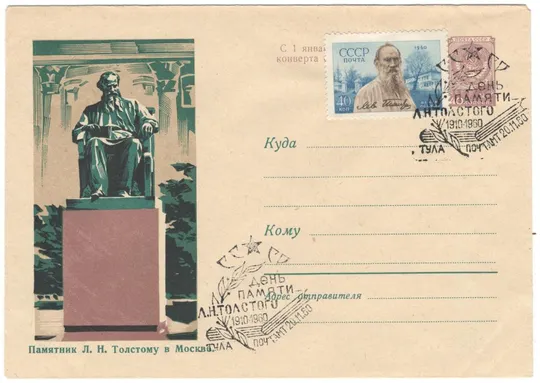 С 1 янва
конверта
СССР
ПОЧТА
1960
40
КОП
Лев Толстой
ПОЧТА СССР
СССР
ДЕНЬ
ПАМЯТИ
Л.Н.ТОЛСТОГО
1910-1960
ТУЛА
ПОЧТАМТ 20.11.60
Куда
Кому
Адрес отправителя
СССР
ДЕНЬ
ПАМЯТИ
Л.Н.ТОЛСТОГО
1910-1960
ТУЛА
ПОЧТАМТ 20.11.60
Памятник Л. Н. Толстому в Москве.